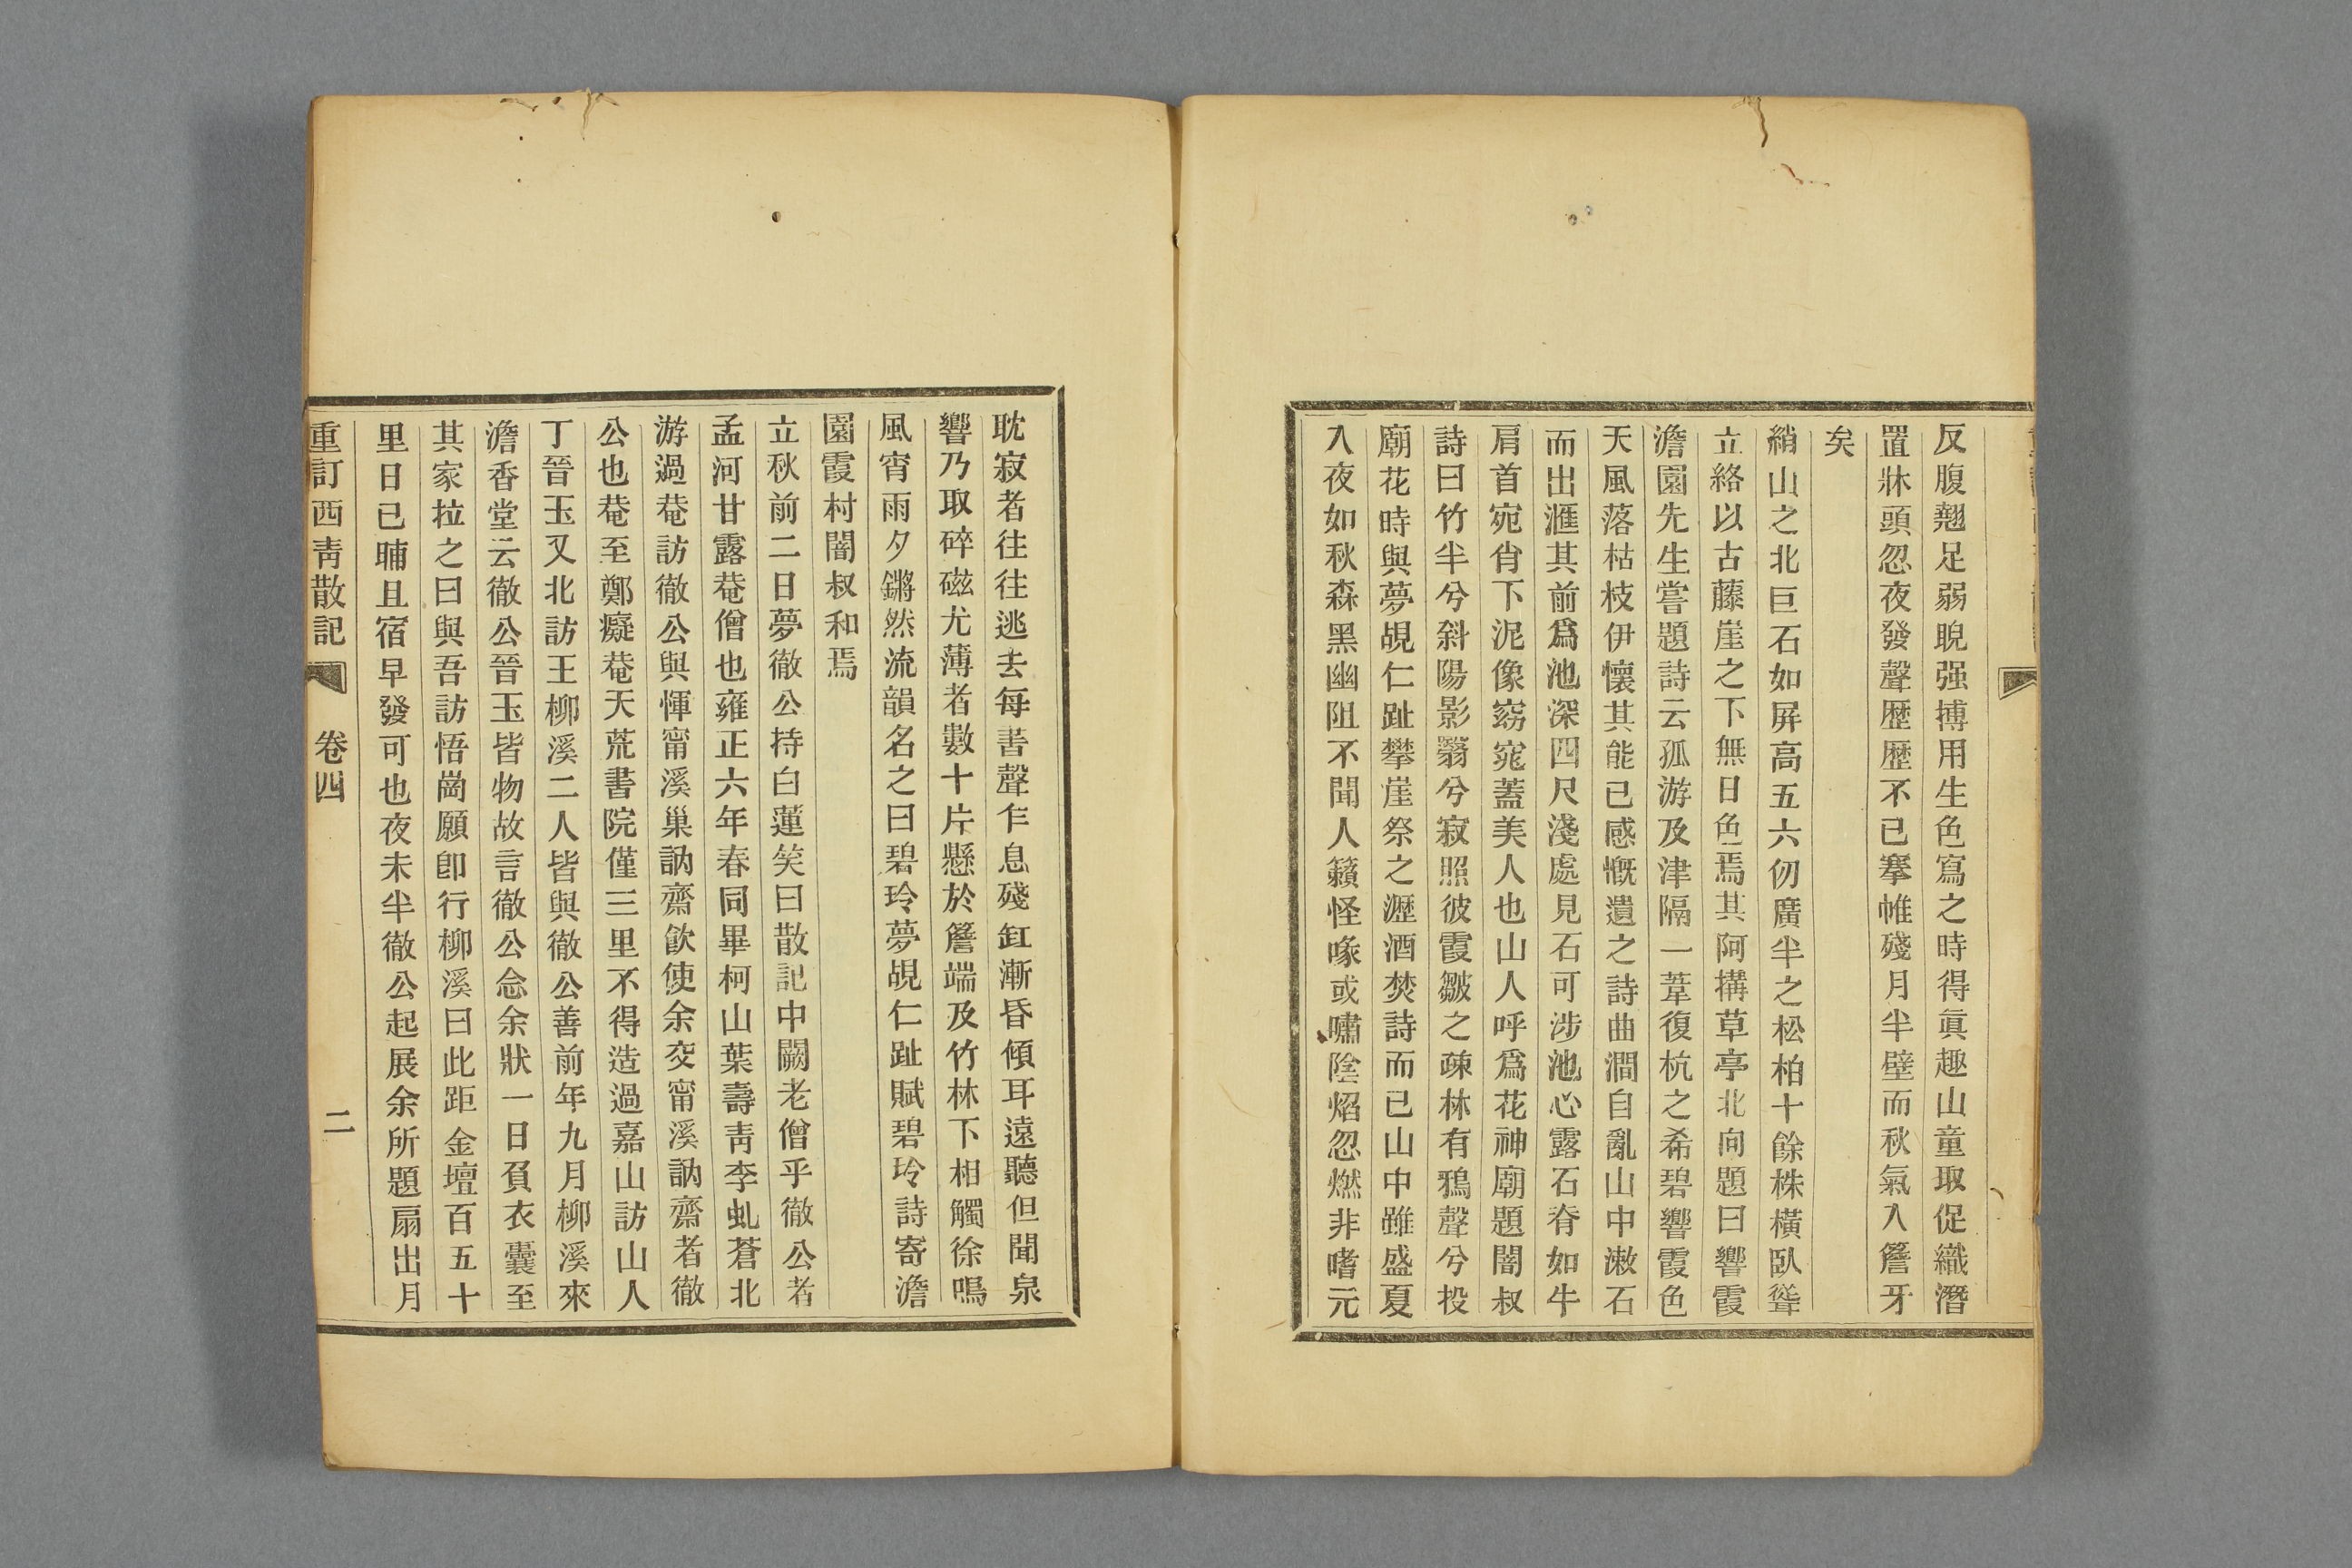 反腹翹足弱睨强搏用生色寫之時得眞趣山童取促織潛
置牀頭忽夜發聲歷歷不已搴帷殘月半壁而秋氣入簷牙
矣
綃山之北巨石如屏高五六仞廣半之松柏十餘株橫臥聳
立絡以古藤崖之下無日色焉其阿搆草亭北向題曰響霞
澹園先生嘗題詩云孤游及津隔一葦復杭之希碧響霞色
天風落枯枝伊懷其能已感慨遺之詩曲澗自亂山中漱石
而出滙其前爲池深四尺淺處見石可涉池心露石脊如牛
肩首宛肖下泥像窈窕蓋美人也山人呼爲花神廟題闇叔
詩曰竹半兮斜陽影翳兮寂照彼霞皺之疎林有鴉聲兮投
廟花時與夢覘仁趾攀崖祭之瀝酒焚詩而已山中雖盛夏
入夜如秋森黑幽阻不聞人籟怪喙或嘯陰焰忽燃非嗜元
耽寂者往往逃去每書聲乍息殘缸漸昏傾耳遠聽但聞泉
響乃取碎磁尤薄者數十片懸於簷端及竹林下相觸徐鳴
風宵雨夕鏘然流韻名之曰碧玲夢覘仁趾賦碧玲詩寄澹
園霞村闇叔和焉
立秋前二日夢徹公持白蓮笑曰散記中闕老僧乎徹公者
孟河甘露菴僧也雍正六年春同畢柯山葉壽靑李虬蒼北
游過菴訪徹公與惲甯溪巢訥齋飮使余交甯溪訥齋者徹
公也菴至鄭癡菴天荒書院僅三里不得造過嘉山訪山人
丁晉玉又北訪王柳溪二人皆與徹公善前年九月柳溪來
澹香堂云徹公晉玉皆物故言徹公念余狀一日負衣囊至
其家拉之曰與吾訪悟崗願卽行柳溪曰此距金壇百五十
里日已晡且宿早發可也夜未半徹公起展余所題扇出月
重訂西靑散記 卷四 二